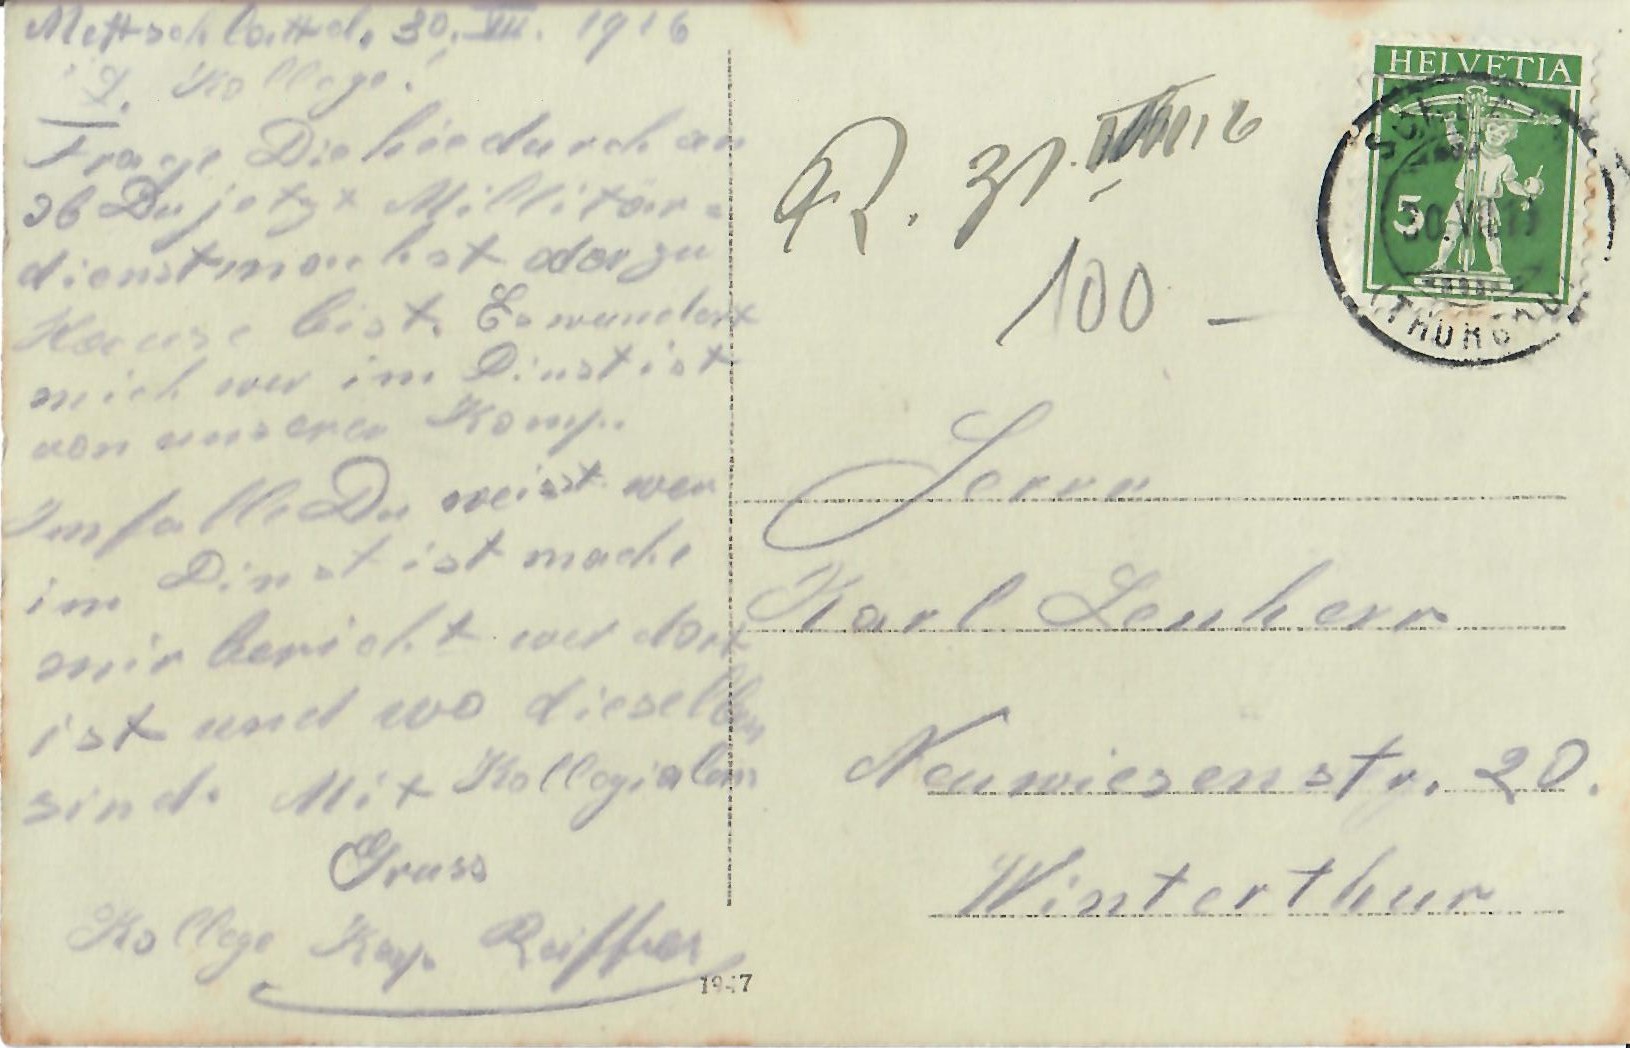 Mettschlatt d. 30. VII. 1916
L. Kollege!
Frage Dich hiedurch an
ob Du jetzt Millitär-
dienst machst oder zu
Hause bist. Es wundert
mich wer im Dinst ist
von unserer Komp.
Imfalle Du weisst wer
im Dinst ist mache
mir bericht wer dort
ist und wo dieselben
sind. Mit Kollegialem
Gruss
Kollege Korp.
1947
R. 31. VIII 16
100 –
HELVETIA
5
30.VII.
(THURGAU)
Herrn
Karl Leuherr
Neuwiesenstr. 20.
Winterthur